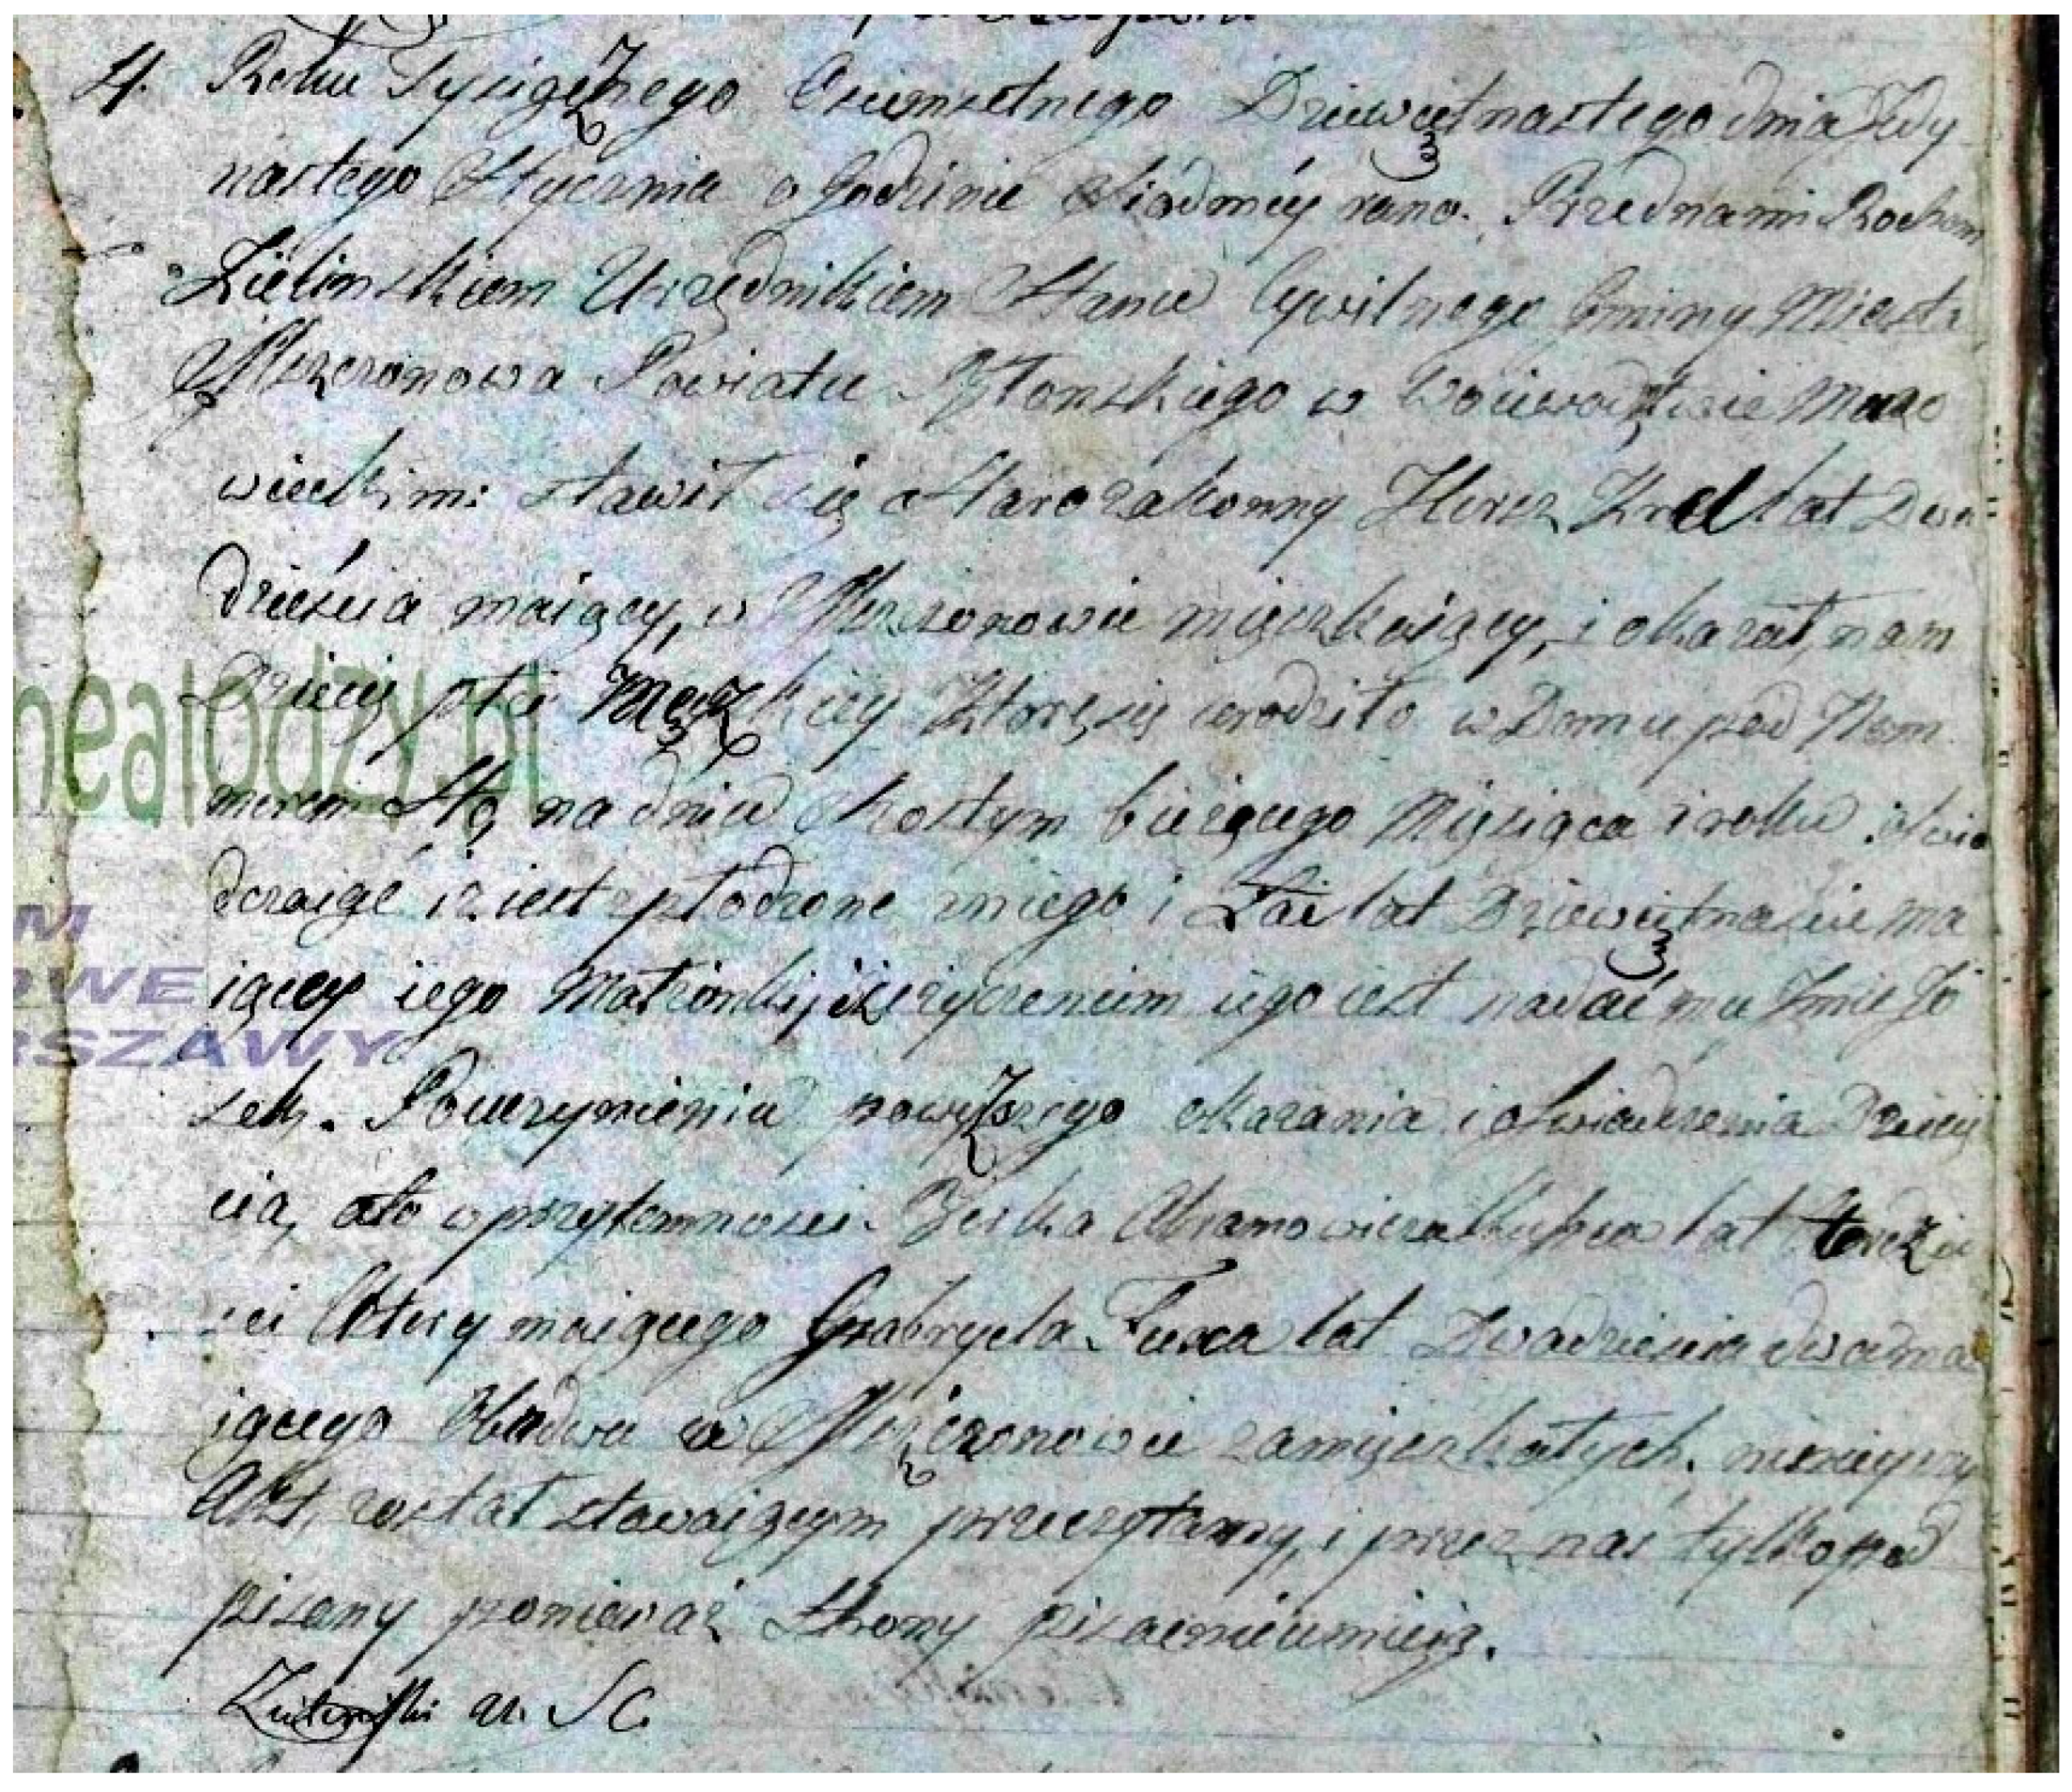 4. Roku Tysiącznego Osiemsetnego Dziewiętnastego dnia Jedy
nastego Stycznia o godzinie Siódméy rano. Przed nami Rochem
Zielinskiem Urzędnikiem Stanu Cywilnego Gminy Miasta
Mszczonowa Powiatu Błonskiego w Woiewodztwie Mazo
wieckim: stawił się Starozakonny Hersz Krel lat Dwa
dzieścia maiący, w Mszczonowie mięszkaiący, i okazał nam
Dziecię płci Męzkiey które się urodziło w Domu pod Nom
merem Sto, na dniu Szostym bieżącego Mięsiąca i roku oświa
dczaiąc iż iest spłodzone zniego i Łai lat Dziewiętnaście ma
iącey iego Małżonki, iż życzeniem iego iest nadać mu Imie Jo
sek. Po uczynieniu powyższego okazania i oświadczenia Dziecię
cia, ato w przytomności Jcka Abramowicza kupca lat trzdzie
ści cztery maiącego Gabryela Fuxa lat Dwadzieścia dwa ma
iącego Obadwu w Mszczonowie zamięszkałych. ninieyszy
Akt, został stawaiącym przeczytany, i przez nas tylko pod
pisany ponieważ Strony pisać nieumieią.
Zieliński u. S C.
NEALODZY.PL
M
OWE
RSZAWY